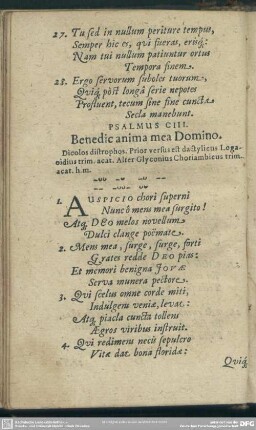 27. Tu sed in nullum periture tempus,
Semper hic es, qui fueras, erisq́;:
Nam tui nullum patiuntur ortus
Tempora finem.
28. Ergo servorum suboles tuorum,
Quiq́; pòst longâ serie nepotes
Profluent, tecum sine fine cuncta
Secla manebunt.
PSALMUS CIII.
Benedic anima mea Domino.
Dicolos distrophos. Prior versus est dactylicus Loga-
oidius trim. acat. Alter Glyconius Choriambicus trim.
acat. h.m.
1. AUSPICIO chori superni
Nunc ô mens mea surgito!
Atq́; DEO melos novellum
Dulci clange poëmate.
2. Mens mea, surge, surge, forti
Grates redde DEO pias:
Et memori benigna JOVÆ
Serva munera pectore.
3. Qui scelus omne corde miti,
Indulgens veniæ, levat:
Atq́; piacla cuncta tollens
Ægros viribus instruit.
4. Qui redimens necis sepulcro
Vitæ dat bona floridæ:
Quiq́;